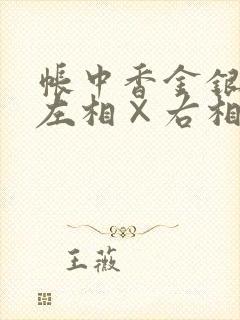 帐中香金银
左相×右相
王薇